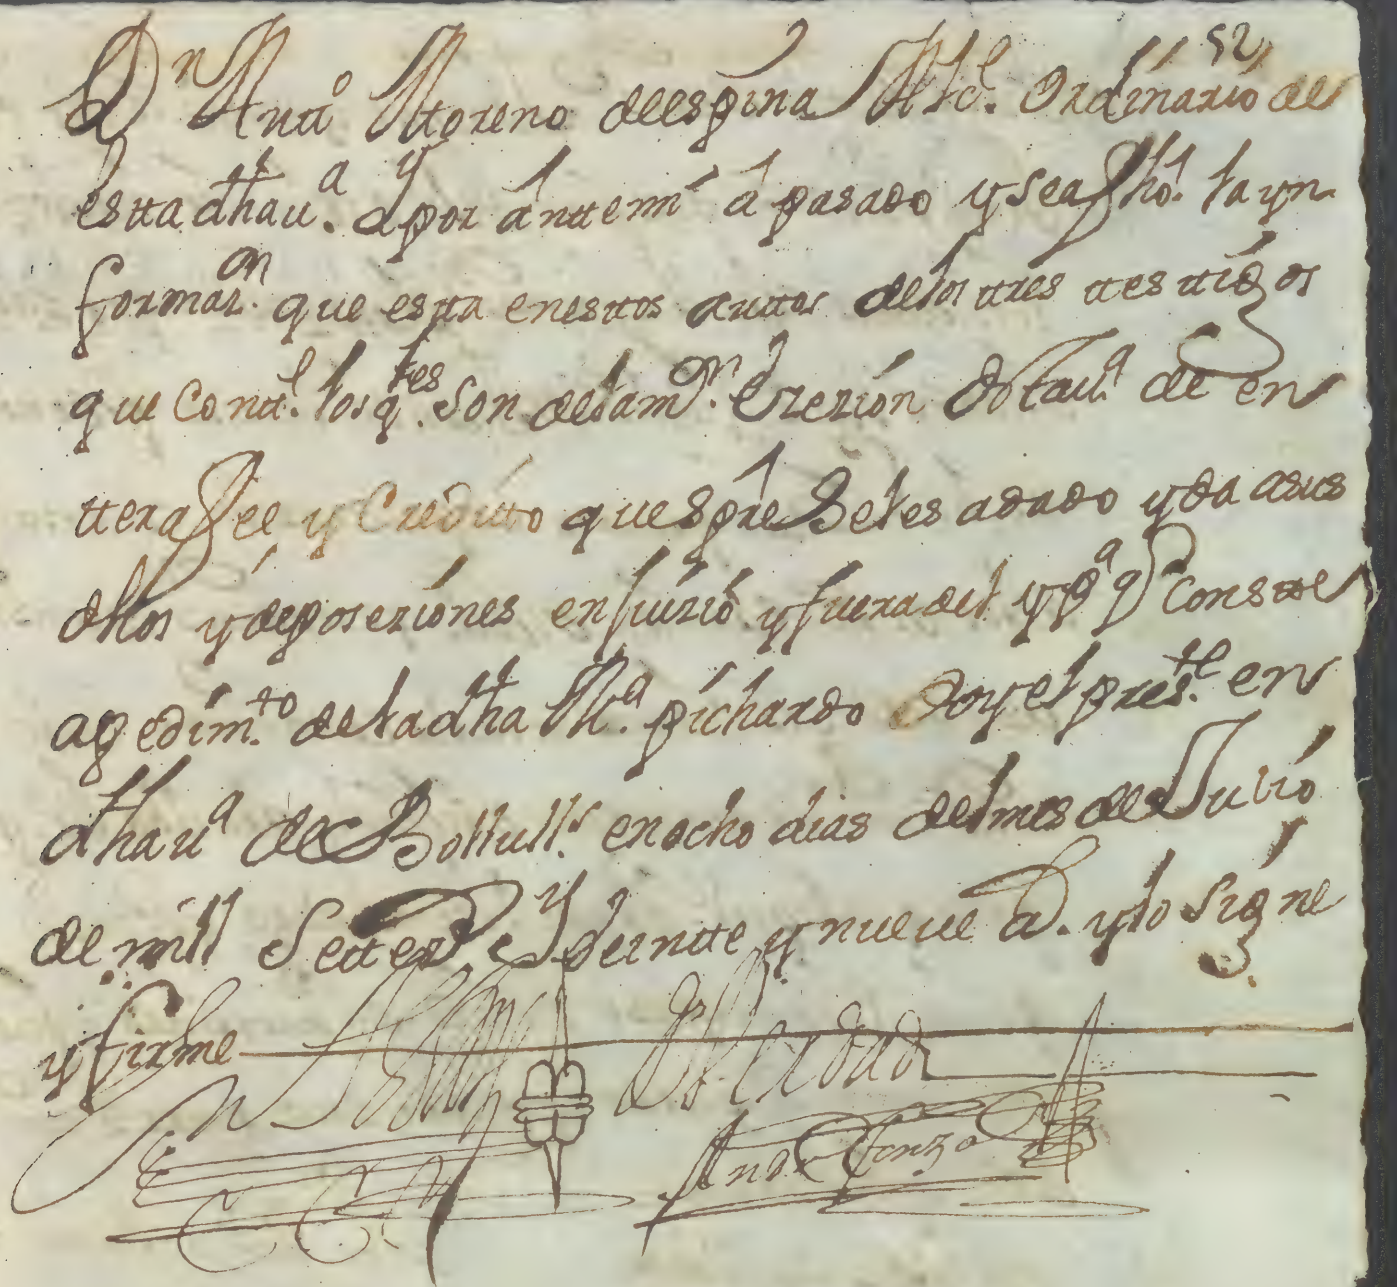 52
Dn Antto Moreno de espina Alce. Ordinario de
estta dha va. y por antte mi a pasado y se a fho. la yn
formazon. que estta en esttos auttos de los tres testtigos
que contt. los qtes. son de la mor. exezión dotaua de en
ttera fee y Creditto que spre se les a dado y da a sus
dhos y deposeziones en Juizio y fuera del y pa q Constte
a pedimto. de la dha Ma. pichardo doy el preste. en
dha va de Bollulls. en ocho dias del mes de Julio
de mill Settezs. y beintte y nueue as. y lo signe
y firme
En testimo de Verdad
Andr Alonzo